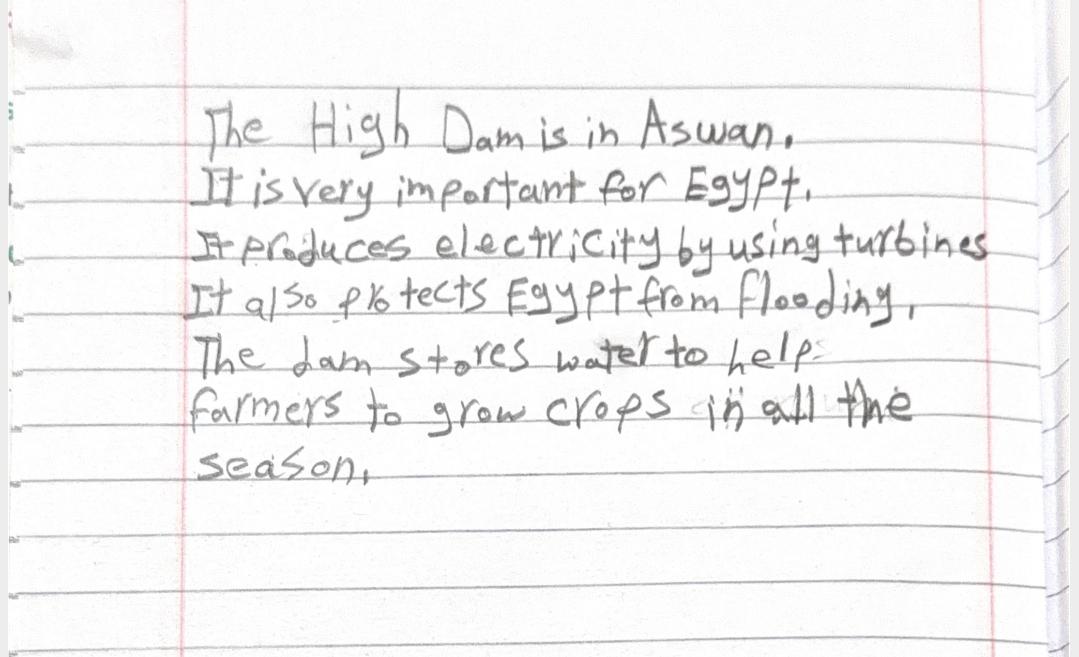 The High Dam is in Aswan.
It is very important for Egypt.
It produces electricity by using turbines
It also protects Egypt from flooding.
The dam stores water to help
farmers to grow crops in all the
season.